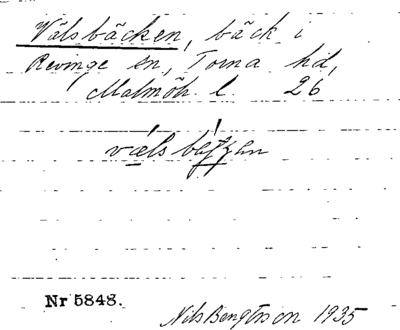 Välsbäcken, bäck i
Revinge sn, Torna hd,
Malmöh l 26
Nr 5848.
Nils Bengtsson 1935